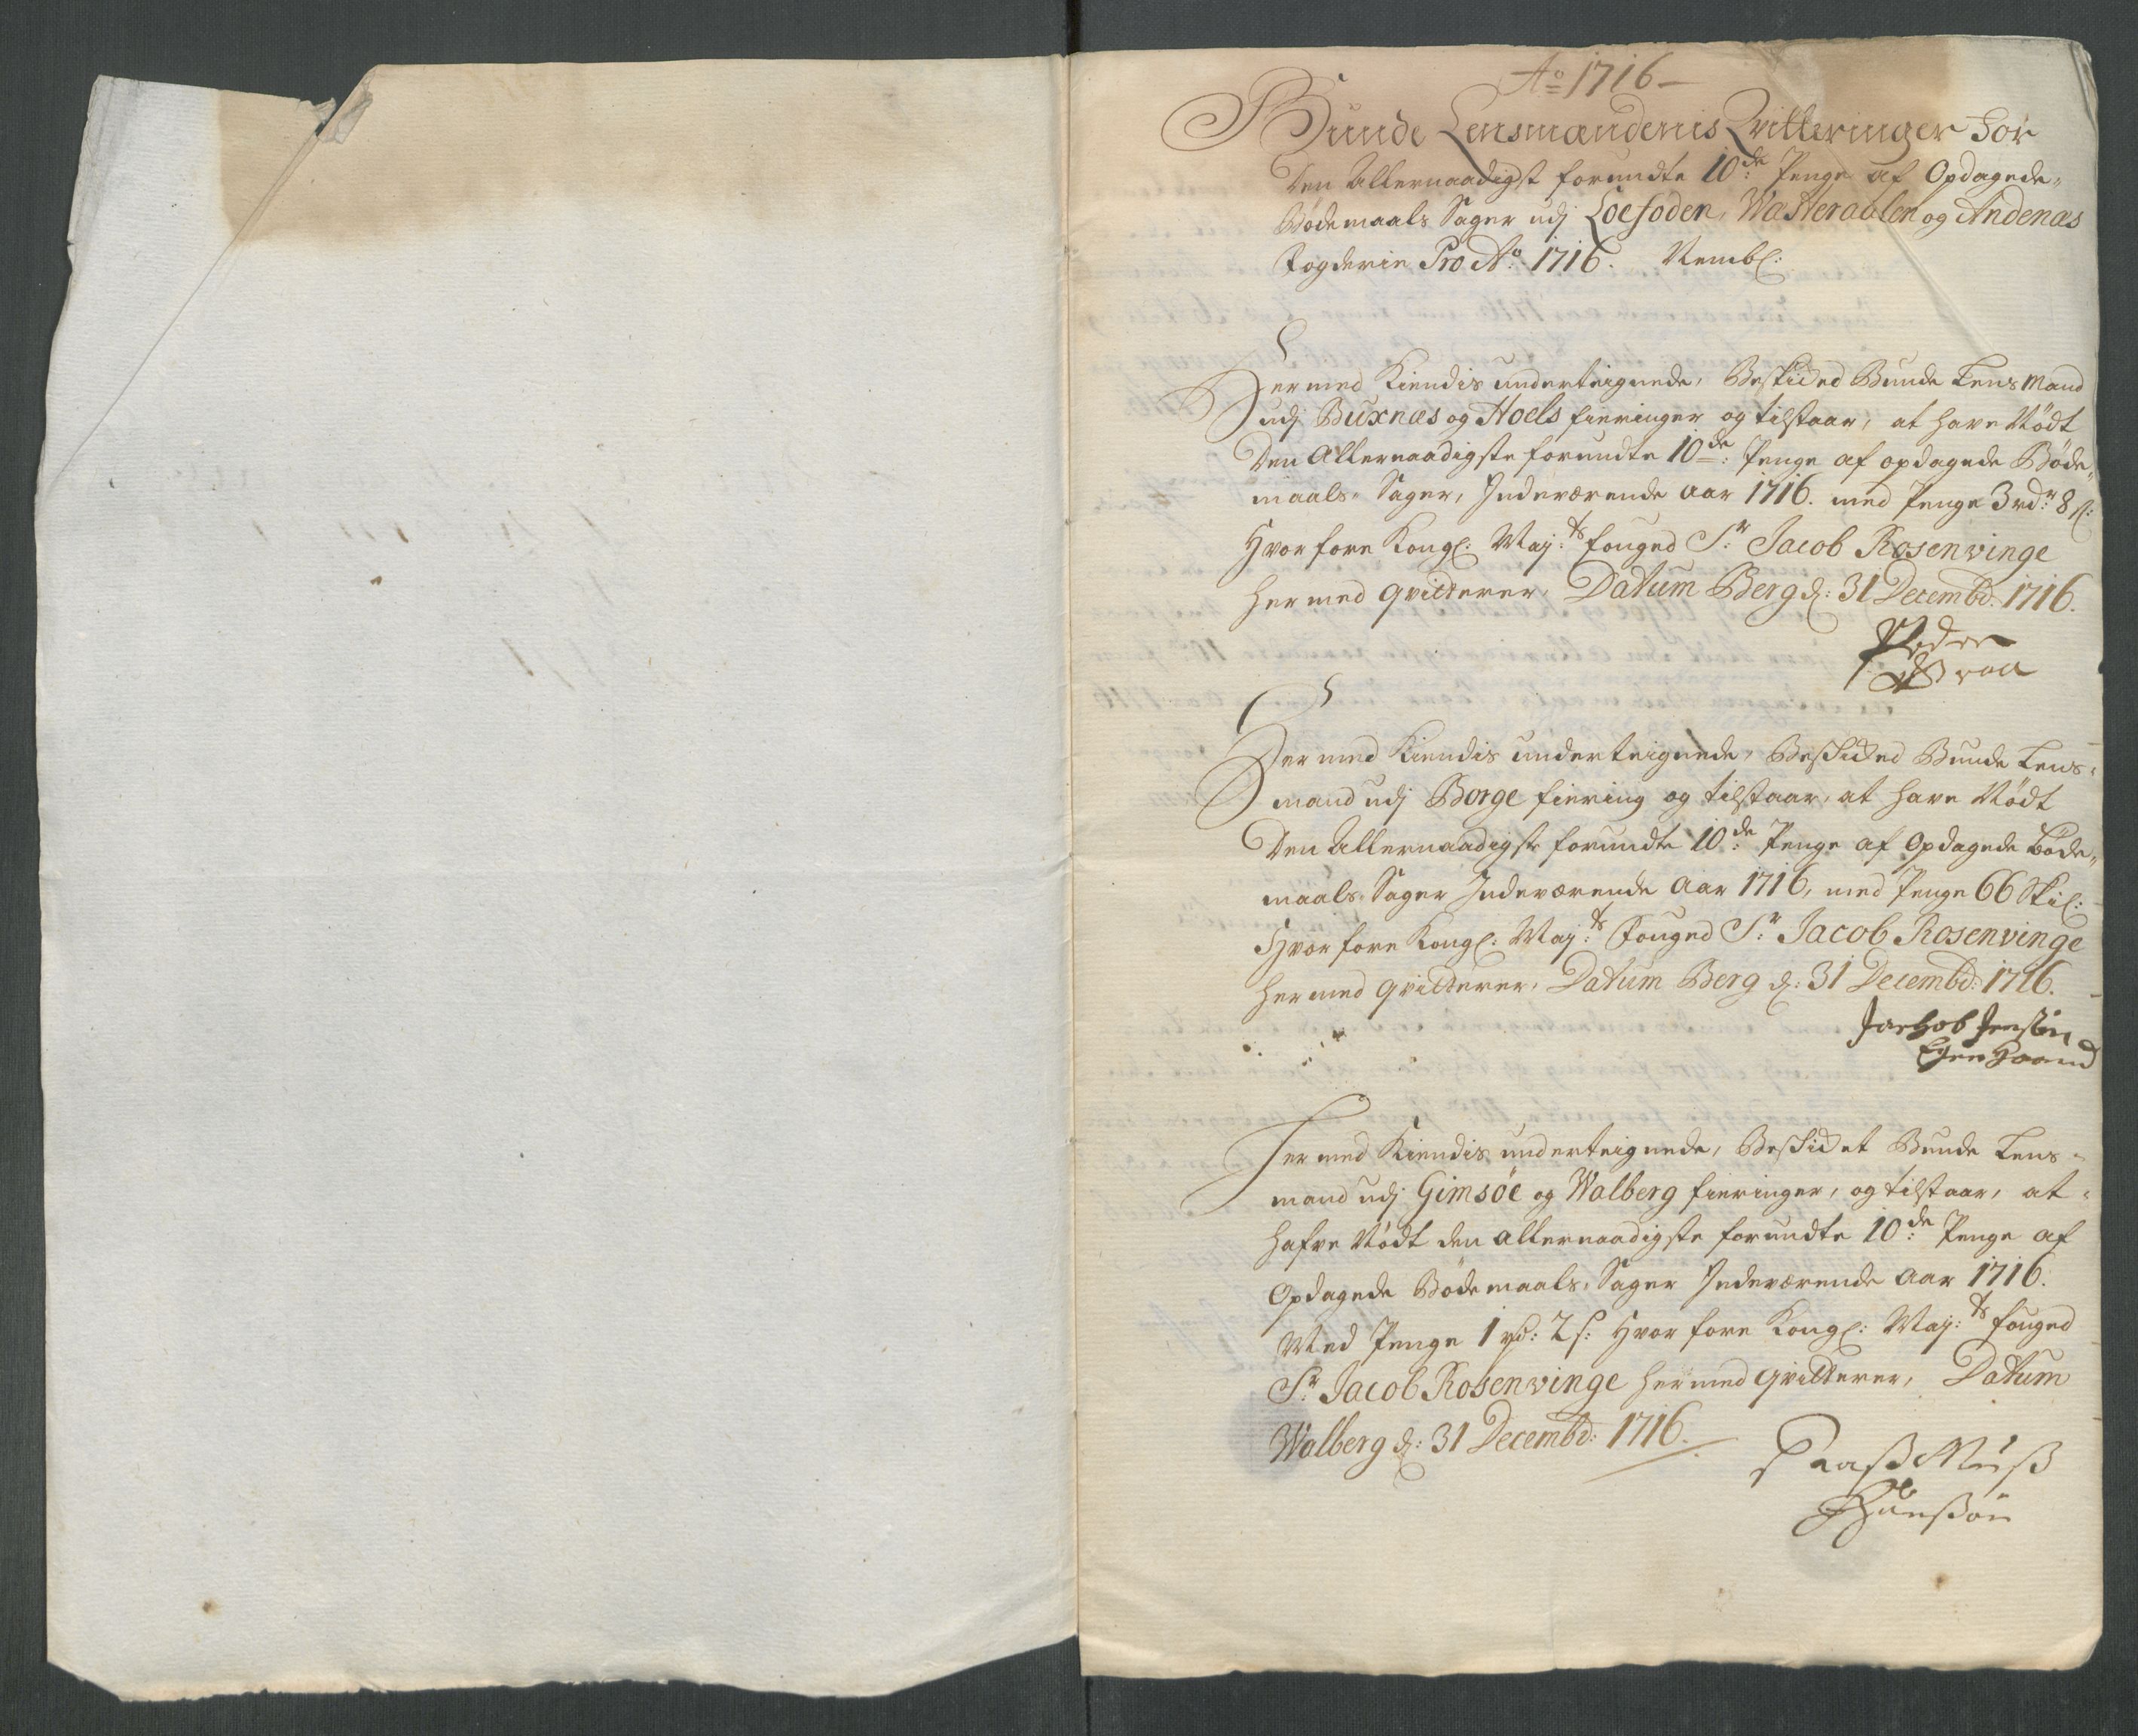 Ao 1716
Bunde Lensmændenis Qvitteringer for
Den Allernaadigst forundte 10de: Penge af Opdagede
Bödemaals Sager udj Loefoden, Wasteraalen og Andenæs
Fogderie Pro Ao: 1716. Nembl:
Hermed Kiendis underteignede, Beskicked Bunde Lensmand
udj Buxnæs og Hoels fieringer og tilstaar, at have Nödt
Den Allernaadigste forundte 10de: Penge af opdagede Böde
maals Sager, Indeværende Aar 1716. med Penge 3 rdr: 8 s:
Hvorfore Kongl: May:ts fouged Sr: Jacob Rosenvinge
hermed qvitterer, Datum Berg d: 31 Decembd: 1716.
Peder
Hermed Kiendis underteignede, Beskicked Bunde Lens
mand udj Borge fiering og tilstaar, at have Nödt
Den Allernaadigste forundte 10de: Penge af Opdagede Böde
maals Sager Indeværende Aar 1716, med Penge 66 Skil:
Hvorfore Kongl: May:ts Fouged Sr: Jacob Rosenvinge
hermed qvitterer, Datum Berg d: 31 Decembd: 1716.
Jachob Jensön
Egen Haand
Hermed Kiendis underteignede, Beskicket Bunde Lens
mand udj Gimsöe og Walberg fieringer, og tilstaar, at
hafve Nödt den allernaadigste forundte 10de: Penge af
Opdagede Bödemaals Sager Indeværende Aar 1716.
Med Penge 1 rd: 2 s: Hvorfore Kongl: May:ts fouged
Sr: Jacob Rosenvinge hermed qvitterer, Datum
Walberg d: 31 Decembd: 1716.
Hanssön